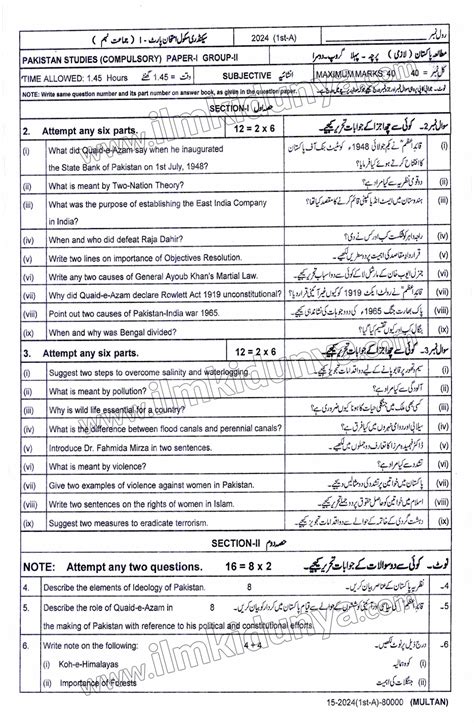 رول نمبر 2024 (1st-A) سیکنڈری سکول امتحان پارٹ - I ( جماعت نہم )
PAKISTAN STUDIES (COMPULSORY) PAPER-I GROUP-II مطالعہ پاکستان (لازمی) پرچہ - پہلا گروپ - دوسرا
TIME ALLOWED: 1.45 Hours وقت = 1.45 گھنٹے SUBJECTIVE انشائیہ MAXIMUM MARKS 40 کل نمبر = 40
NOTE: Write same question number and its part number on answer book, as given in the question paper.
SECTION-I حصہ اول
2. Attempt any six parts. 12 = 2 x 6 سوال نمبر 2- کوئی سے چھ اجزا کے جوابات تحریر کیجیے۔
(i) What did Quaid-e-Azam say when he inaugurated
the State Bank of Pakistan on 1st July, 1948? (i)
(ii) What is meant by Two-Nation Theory? دو قومی نظریہ سے کیا مراد ہے؟ (ii)
(iii) What was the purpose of establishing the East India Company
in India? ہندوستان میں ایسٹ انڈیا کمپنی قائم کرنے کا مقصد کیا تھا؟ (iii)
(iv) When and who did defeat Raja Dahir? راجہ داہر کو شکست کب اور کس نے دی؟ (iv)
(v) Write two lines on importance of Objectives Resolution. قرارداد مقاصد کی اہمیت پر دو سطریں لکھیے۔ (v)
(vi) Write any two causes of General Ayoub Khan's Martial Law. جنرل ایوب خان کے مارشل لا کے کوئی سے دو اسباب تحریر کیجیے۔ (vi)
(vii) Why did Quaid-e-Azam declare Rowlett Act 1919 unconstitutional? (vii)
(viii) Point out two causes of Pakistan-India war 1965. پاک بھارت جنگ 1965 کی دو وجوہات کی نشاندہی کیجیے۔ (viii)
(ix) When and why was Bengal divided? بنگال کب اور کیوں تقسیم کیا گیا؟ (ix)
3. Attempt any six parts. 12 = 2 x 6 سوال نمبر 3- کوئی سے چھ اجزا کے جوابات تحریر کیجیے۔
(i) Suggest two steps to overcome salinity and waterlogging. (i)
(ii) What is meant by pollution? آلودگی سے کیا مراد ہے؟ (ii)
(iii) Why is wild life essential for a country? کسی بھی ملک میں جنگلی حیات کا ہونا کیوں ضروری ہے؟ (iii)
(iv) What is the difference between flood canals and perennial canals? (iv)
(v) Introduce Dr. Fahmida Mirza in two sentences. ڈاکٹر فہمیدہ مرزا کا تعارف دو جملوں میں لکھیے۔ (v)
(vi) What is meant by violence? تشدد سے کیا مراد ہے؟ (vi)
(vii) Give two examples of violation against women in Pakistan. (vii)
(viii) Write two sentences on the rights of women in Islam. (viii)
(ix) Suggest two measures to eradicate terrorism. (ix)
SECTION-II حصہ دوم
NOTE: Attempt any two questions. 16 = 8 x 2 نوٹ - کوئی سے دو سوالات کے جوابات تحریر کیجیے۔
4. Describe the elements of Ideology of Pakistan. 8 نظریہ پاکستان کے عناصر بیان کریں۔ 4-
5. Describe the role of Quaid-e-Azam in 8 5-
the making of Pakistan with reference to his political and constitutional efforts.
6. Write note on the following: 4+4 درج ذیل پر نوٹ لکھیے۔ 6-
(i) Koh-e-Himalayas کوہ ہمالیہ (i)
(ii) Importance of Forests جنگلات کی اہمیت (ii)
15-2024(1st-A)-80000 (MULTAN)
www.ilmkidunya.com
www.ilmkidunya.com
www.ilmkidunya.com